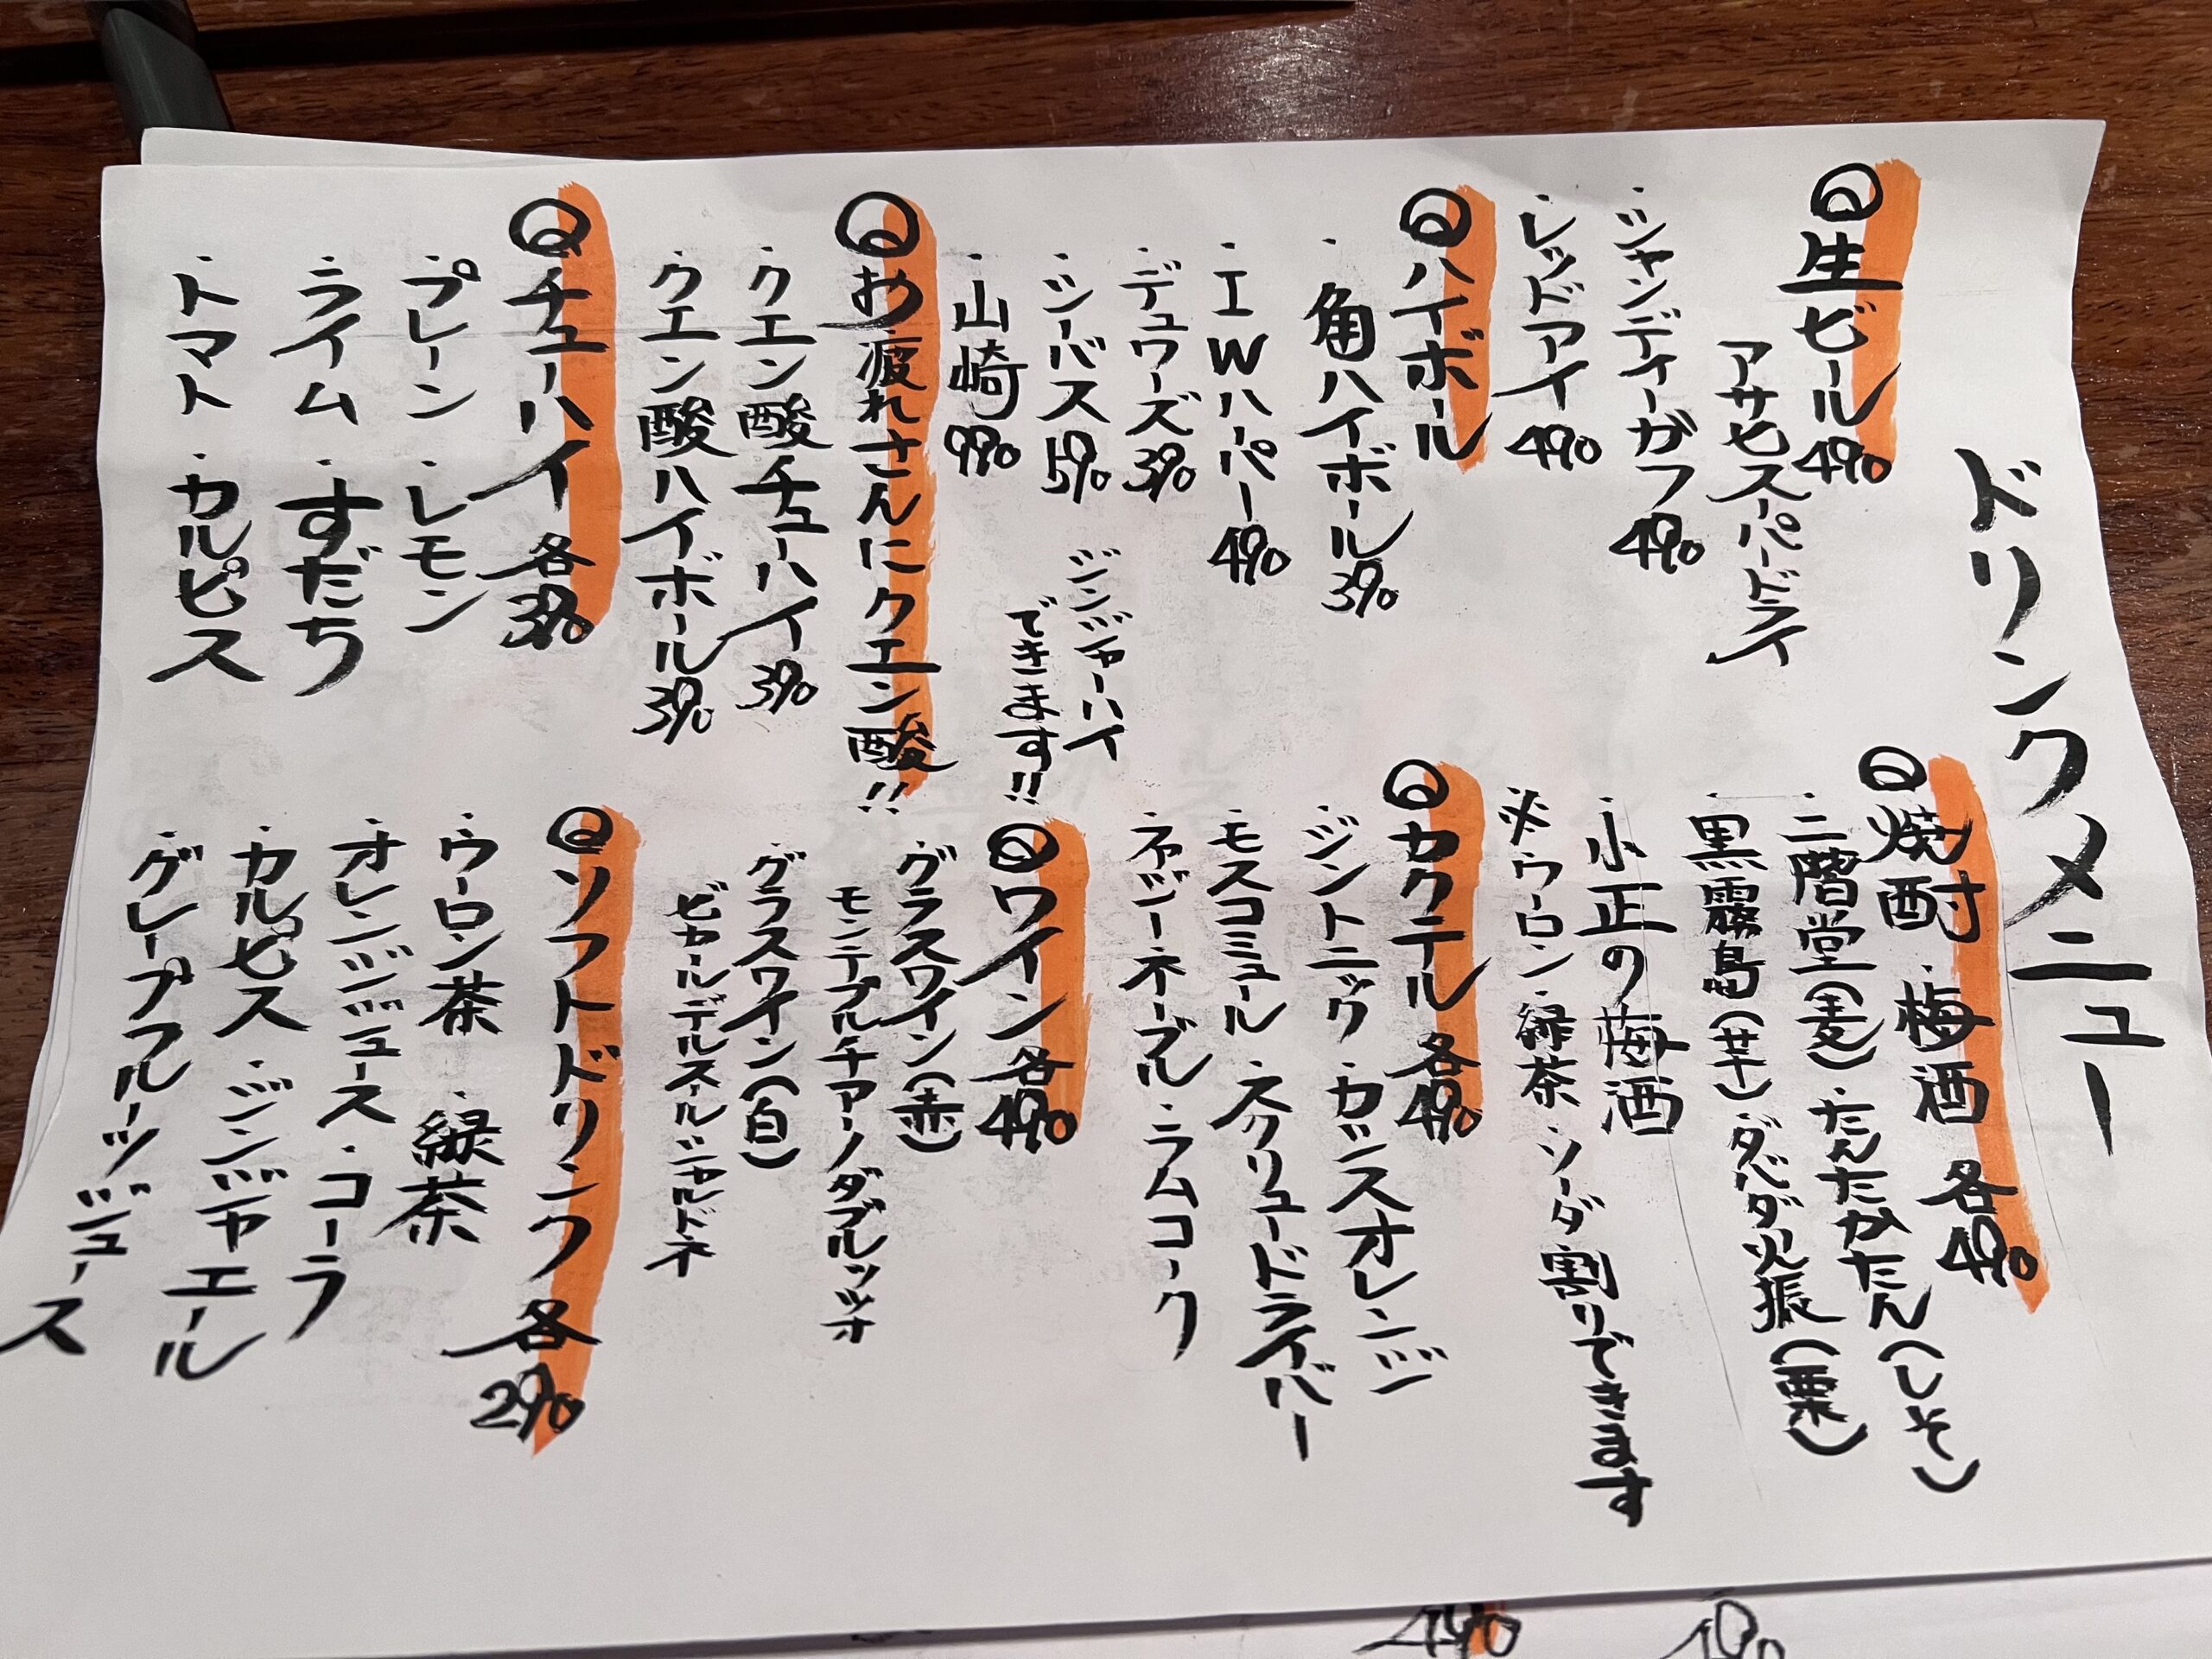 ドリンクメニュー
◎生ビール 490
アサヒスーパードライ
・シャンディーガフ 490
・レッドアイ 490
◎ハイボール
・角ハイボール 390
・IWハーパー 490
・デュワーズ 390
・シーバス 590
・山崎 990
ジンジャーハイ
できます!!
◎お疲れさんにクエン酸!!
・クエン酸チューハイ 390
・クエン酸ハイボール 390
◎チューハイ 各390
・プレーン ・レモン
・ライム ・すだち
・トマト ・カルピス
◎焼酎・梅酒 各490
・二階堂(麦)・たんたかたん(しそ)
・黒霧島(芋)・ダバダ火振(栗)
・小正の梅酒
※ウーロン・緑茶・ソーダ割りできます
◎カクテル 各490
・ジントニック ・カシスオレンジ
・モスコミュール ・スクリュードライバー
・ファジーネーブル ・ラムコーク
◎ワイン 各490
・グラスワイン(赤)
モンテプルチアーノダブルッツオ
・グラスワイン(白)
ビカールデルスールシャルドネ
◎ソフトドリンク 各290
・ウーロン茶 ・緑茶
・オレンジジュース ・コーラ
・カルピス ・ジンジャエール
・グレープフルーツジュース
490